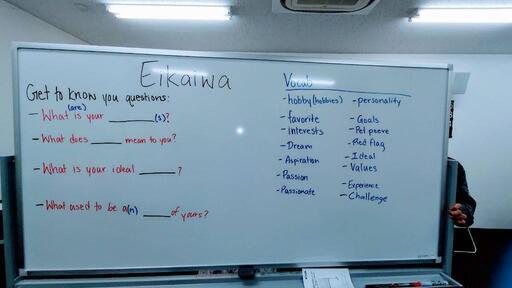 Eikaiwa
Get to know you questions:
(are)
- What is your ______ (s)?
- What does ____ mean to you?
- What is your ideal ____ ?
- What used to be a(n) ____ of yours?
Vocab
- hobby (hobbies)
- favorite
- interests
- Dream
- Aspiration
- Passion
- Passionate
- personality
- Goals
- Pet peeve
- Red flag
- Ideal
- Values
- Experience
- Challenge